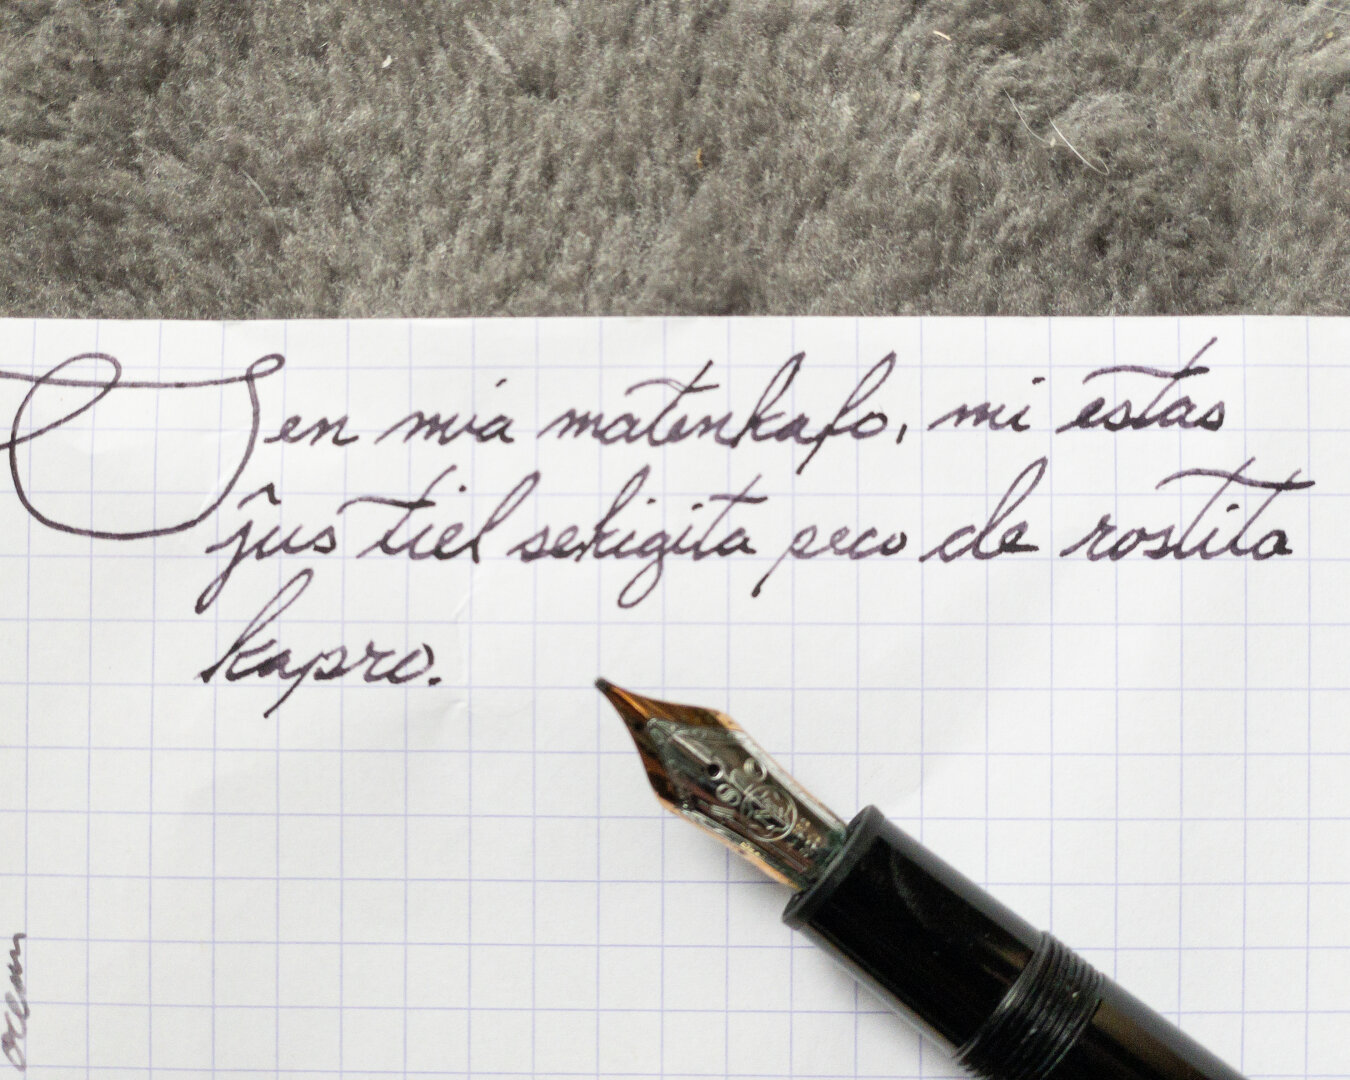 Sen mia matenkafo, mi estas
ĵus tiel sekigita peco de rostita
kapro.